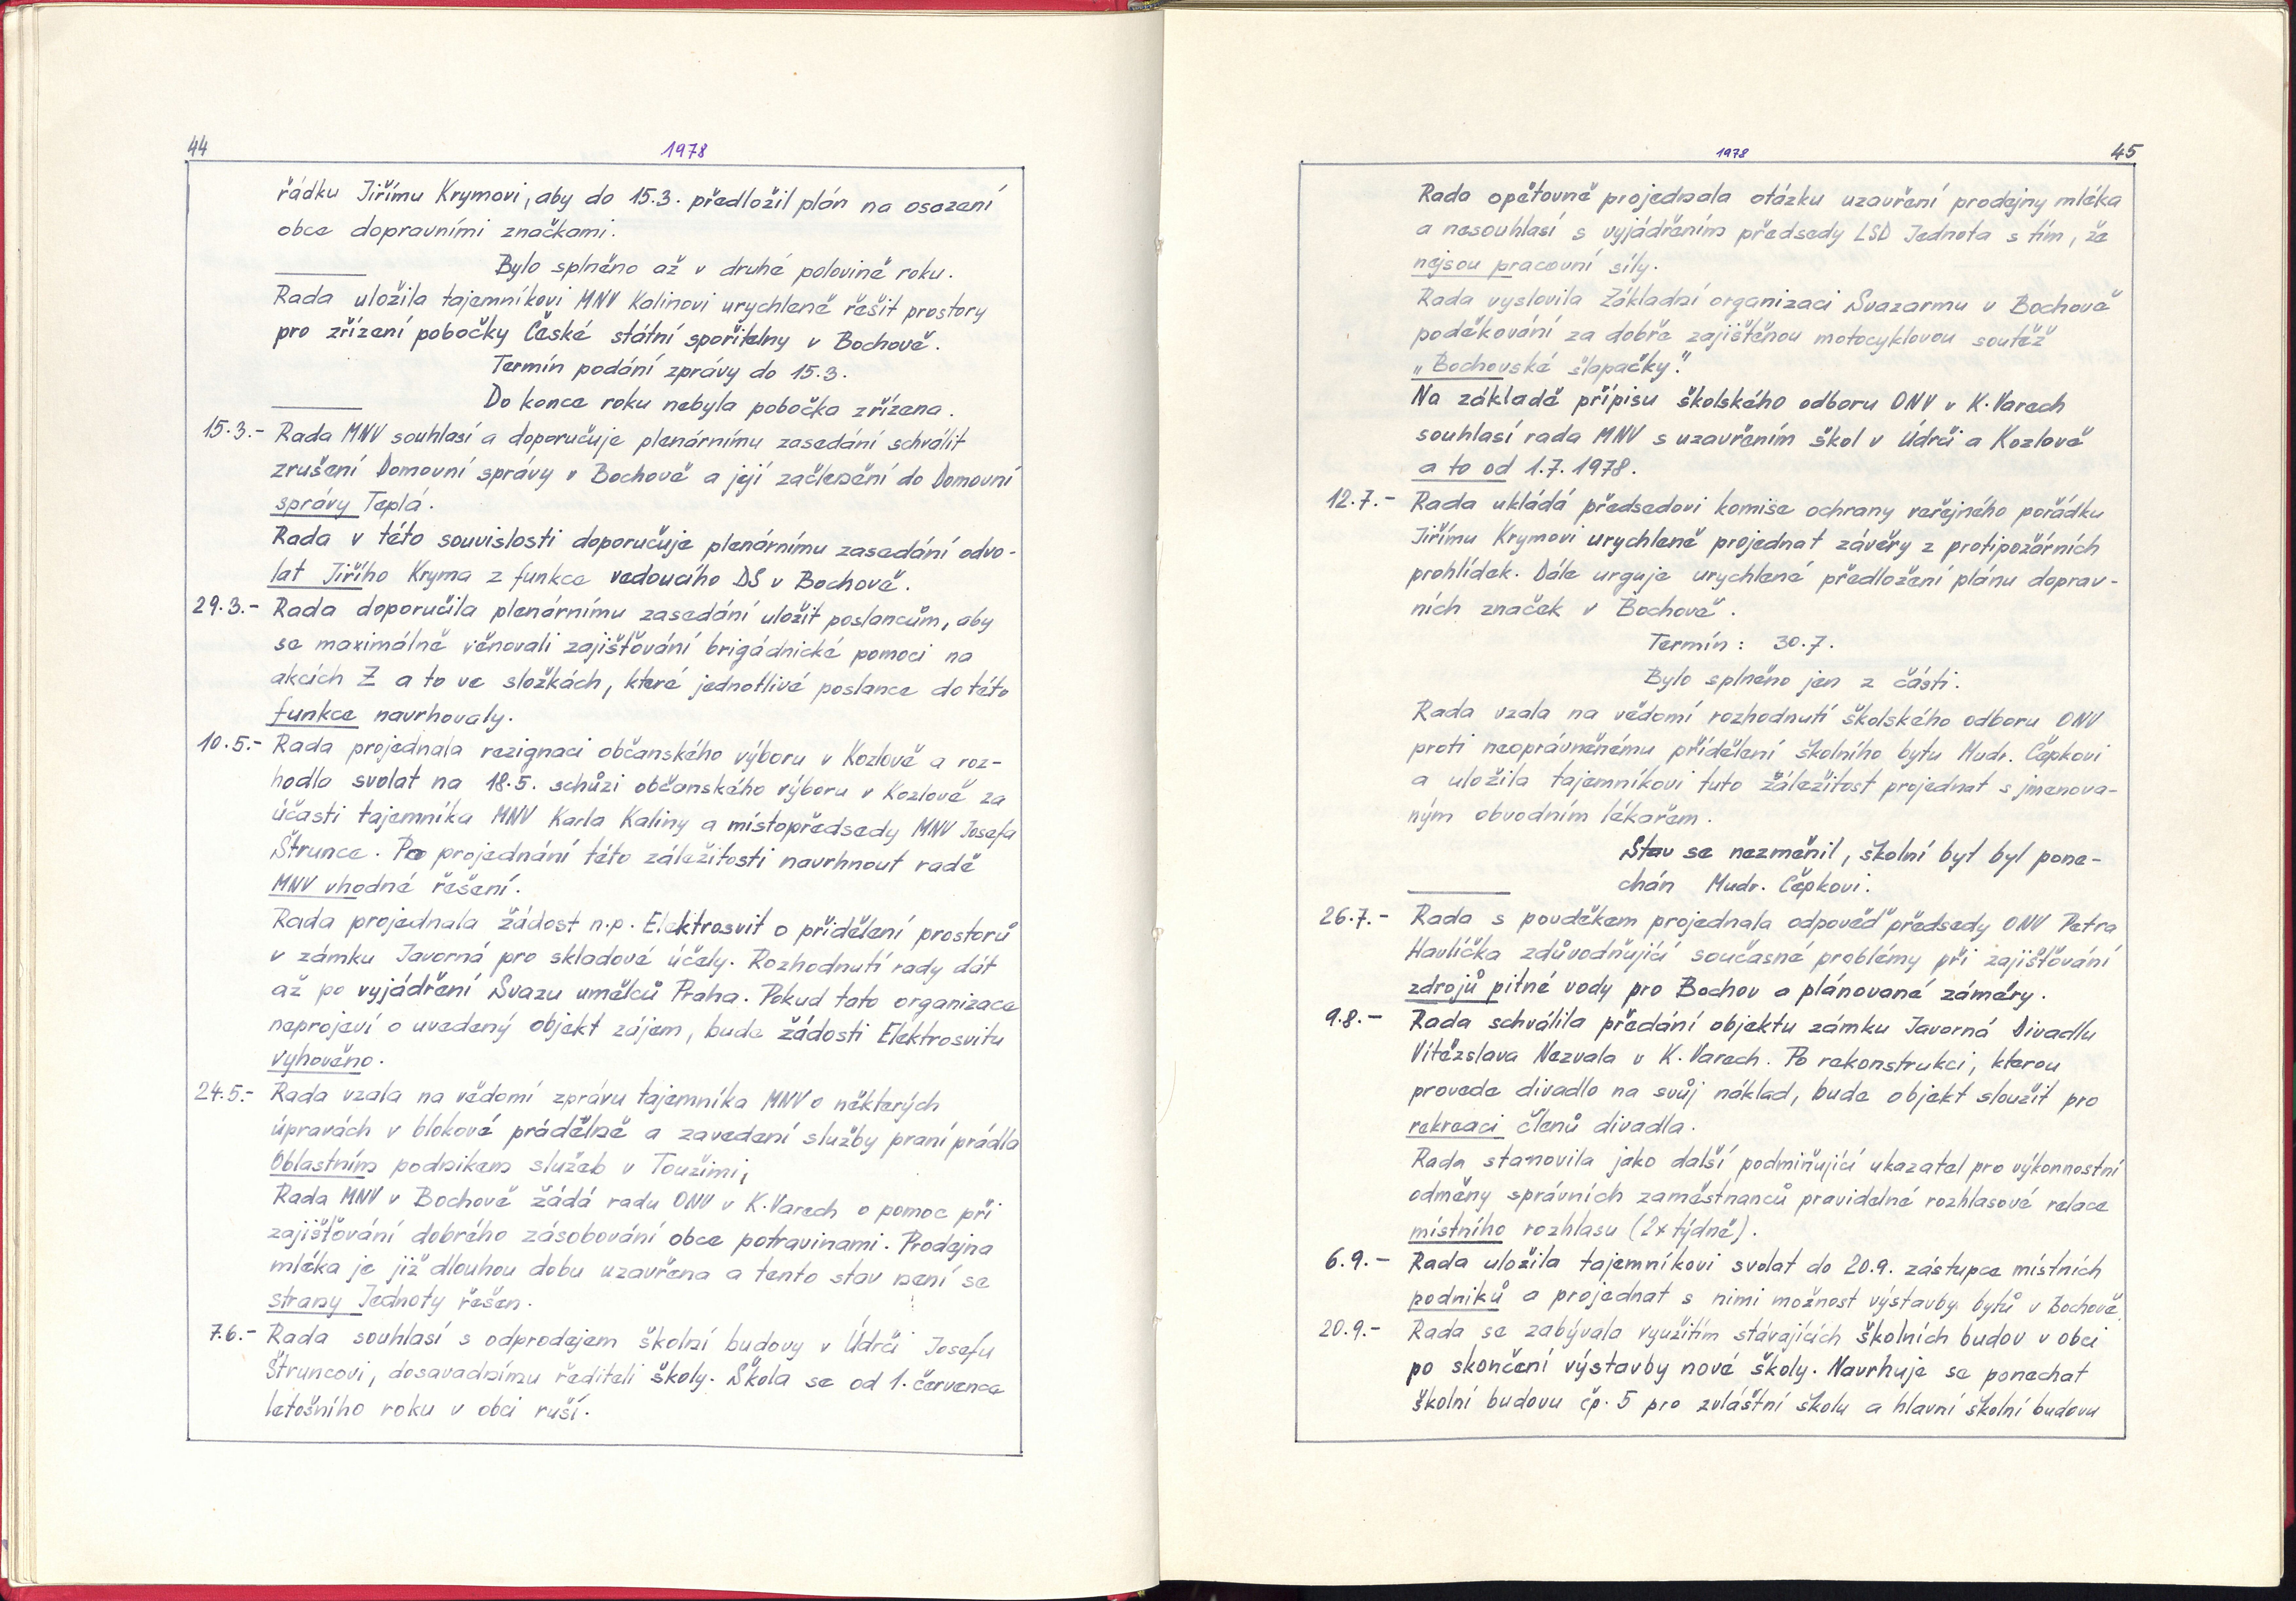 44
1978
řádku Jiřímu Krymovi, aby do 15.3. předložil plán na osazení
obce dopravními značkami.
Bylo splněno až v druhé polovině roku.
Rada uložila tajemníkovi MNV Kalinovi urychleně řešit prostory
pro zřízení pobočky České státní spořitelny v Bochově.
Termín podání zprávy do 15.3.
Do konce roku nebyla pobočka zřízena.
15.3.- Rada MNV souhlasí a doporučuje plenárnímu zasedání schválit
zrušení Domovní správy v Bochově a její začlenění do Domovní
správy Teplá.
Rada v této souvislosti doporučuje plenárnímu zasedání odvo-
lat Jiřího Kryma z funkce vedoucího DS v Bochově.
29.3.- Rada doporučila plenárnímu zasedání uložit poslancům, aby
se maximálně věnovali zajišťování brigádnické pomoci na
akcích Z a to ve složkách, které jednotlivé poslance do této
funkce navrhovaly.
10.5.- Rada projednala rezignaci občanského výboru v Kozlově a roz-
hodla svolat na 18.5. schůzi občanského výboru v Kozlově za
účasti tajemníka MNV Karla Kaliny a místopředsedy MNV Josefa
Štrunce. Po projednání této záležitosti navrhnout radě
MNV vhodné řešení.
Rada projednala žádost n.p. Elektrosvit o přidělení prostorů
v zámku Javorná pro skladové účely. Rozhodnutí rady dát
až po vyjádření Svazu umělců Praha. Pokud tato organizace
neprojeví o uvedený objekt zájem, bude žádosti Elektrosvitu
vyhověno.
24.5.- Rada vzala na vědomí zprávu tajemníka MNV o některých
úpravách v blokové prádelně a zavedení služby praní prádla
Oblastním podnikem služeb v Toužimi,
Rada MNV v Bochově žádá radu ONV v K.Varech o pomoc při
zajišťování dobrého zásobování obce potravinami. Prodejna
mléka je již dlouhou dobu uzavřena a tento stav není se
strany Jednoty řešen.
7.6.- Rada souhlasí s odprodejem školní budovy v Údrči Josefu
Štruncovi, dosavadnímu řediteli školy. Škola se od 1. července
letošního roku v obci ruší.
1978
45
Rada opětovně projednala otázku uzavření prodejny mléka
a nesouhlasí s vyjádřením předsedy LSD Jednota s tím, že
nejsou pracovní síly.
Rada vyslovila Základní organizaci Svazarmu v Bochově
poděkování za dobře zajištěnou motocyklovou soutěž
„Bochovské šlapačky."
Na základě přípisu školského odboru ONV v K.Varech
souhlasí rada MNV s uzavřením škol v Údrči a Kozlově
a to od 1.7.1978.
12.7.- Rada ukládá předsedovi komise ochrany veřejného pořádku
Jiřímu Krymovi urychleně projednat závěry z protipožárních
prohlídek. Dále urguje urychlené předložení plánu doprav-
ních značek v Bochově.
Termín: 30.7.
Bylo splněno jen z části.
Rada vzala na vědomí rozhodnutí školského odboru ONV
proti neoprávněnému přidělení školního bytu Mudr. Čépkovi
a uložila tajemníkovi tuto záležitost projednat s jmenova-
ným obvodním lékařem.
Stav se nezměnil, školní byt byl pone-
chán Mudr. Čépkovi.
26.7.- Rada s povděkem projednala odpověď předsedy ONV Petra
Havlíčka zdůvodňující současné problémy při zajišťování
zdrojů pitné vody pro Bochov a plánované záměry.
9.8.- Rada schválila předání objektu zámku Javorná Divadlu
Vítězslava Nezvala v K.Varech. Po rekonstrukci, kterou
provede divadlo na svůj náklad, bude objekt sloužit pro
rekreaci členů divadla.
Rada stanovila jako další podmiňující ukazatel pro výkonnostní
odměny správních zaměstnanců pravidelné rozhlasové relace
místního rozhlasu (2x týdně).
6.9.- Rada uložila tajemníkovi svolat do 20.9. zástupce místních
podniků a projednat s nimi možnost výstavby bytů v Bochově.
20.9.- Rada se zabývala využitím stávajících školních budov v obci
po skončení výstavby nové školy. Navrhuje se ponechat
školní budovu čp. 5 pro zvláštní školu a hlavní školní budovu